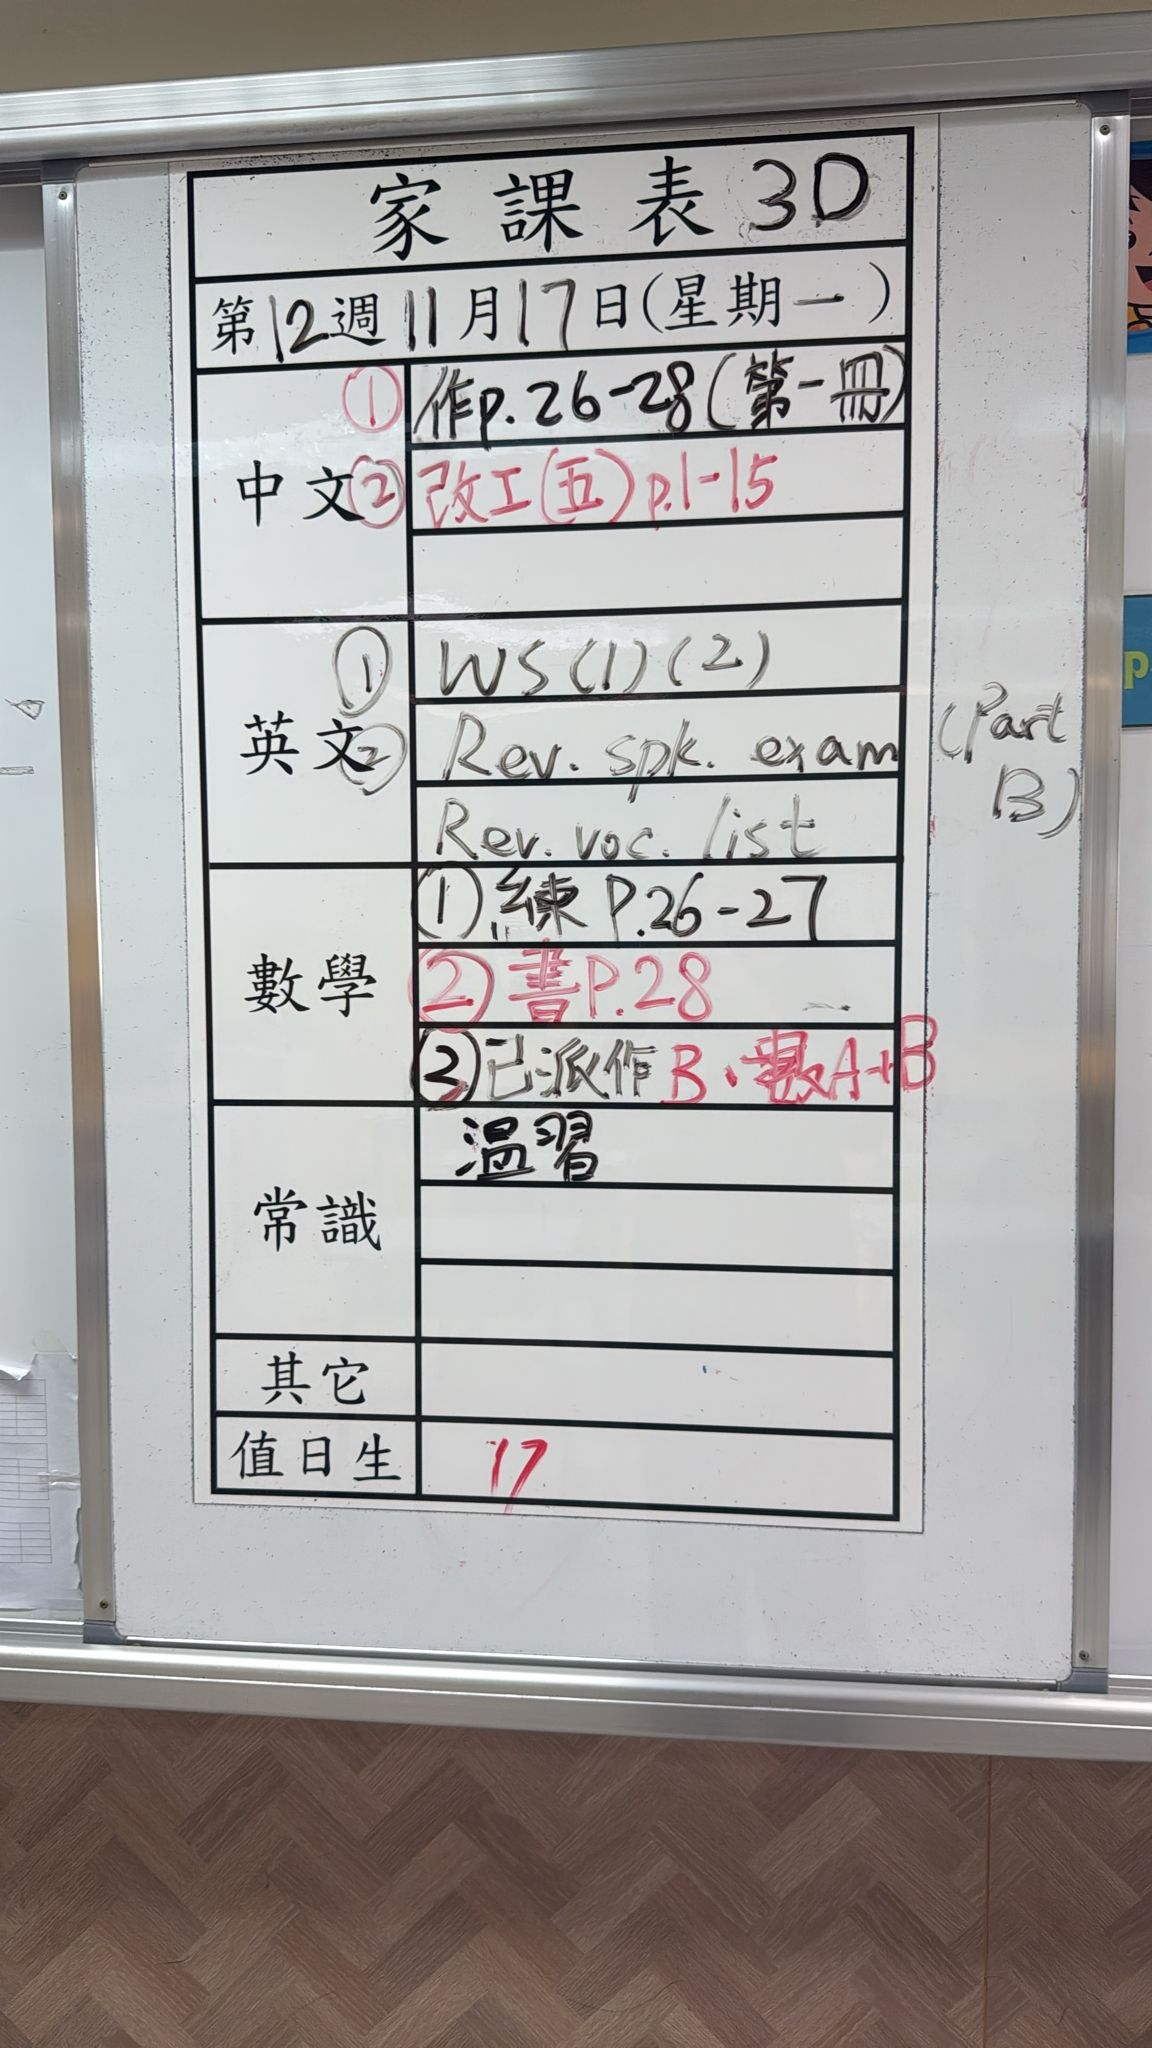 家課表 3D
第12週 11月17日(星期一)
中文
① 作p.26-28(第一冊)
② 改工(五)p.1-15
英文
① WS(1)(2)
② Rev. spk. exam (Part B)
Rev. voc. list
數學
① 練 P.26-27
② 書P.28
③ 已派作B、A+B
常識
溫習
其它
值日生
17